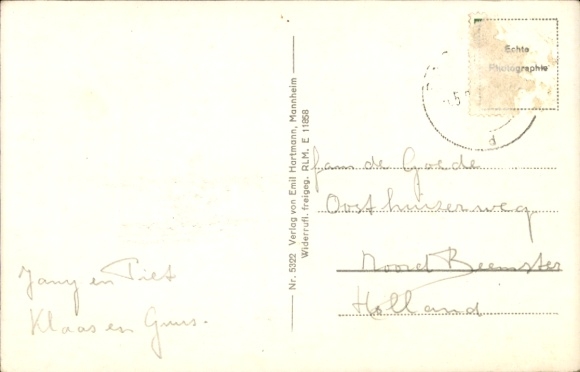 Echte
Photographie
Nr. 5322 Verlag von Emil Hartmann, Mannheim
Widerrufl. freigeg. RLM. E 11858
Fam de Goede
Oosthuizerweg
Noord Beemster
Holland
Jany en Piet
Klaas en Guus.